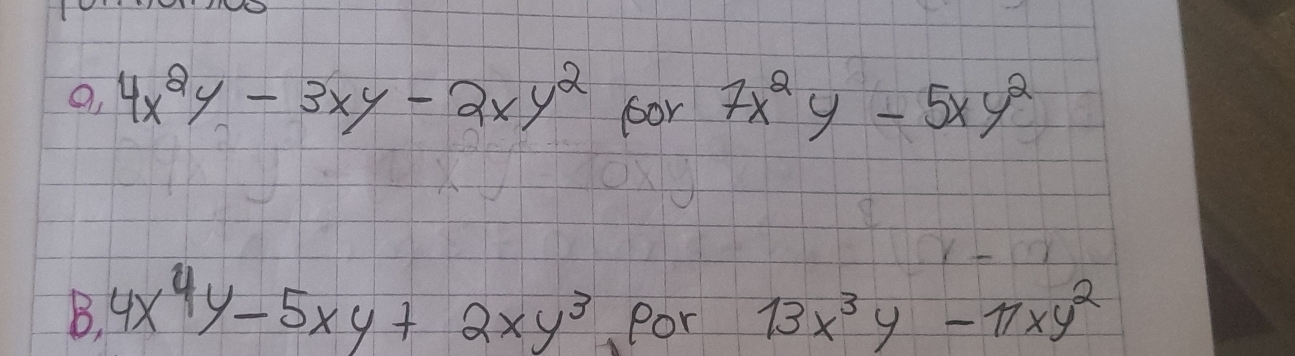 a. 4x²y - 3xy - 2xy² por 7x²y - 5xy²
B. 4x⁴y - 5xy + 2xy³ por 13x³y - 11xy²